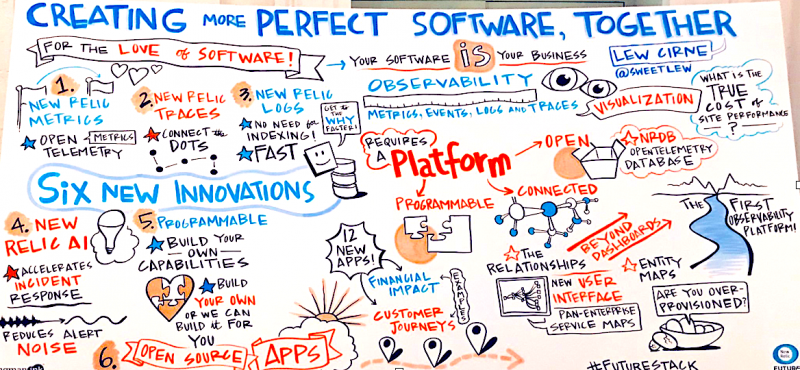 CREATING MORE PERFECT SOFTWARE, TOGETHER
FOR THE LOVE of SOFTWARE!
YOUR SOFTWARE IS YOUR BUSINESS
LEW CIRNE
@SWEETLEW
OBSERVABILITY
METRICS, EVENTS, LOGS and TRACES
VISUALIZATION
WHAT IS THE
TRUE
COST of
SITE PERFORMANCE
?
1.
NEW RELIC
METRICS
OPEN METRICS
TELEMETRY
2. NEW RELIC
TRACES
CONNECT the
DOTS
3. NEW RELIC
LOGS
NO NEED for
INDEXING!
FAST
GET to
the
WHY
FASTER!
REQUIRES
A
Platform
OPEN
NRDB
OPENTELEMETRY
DATABASE
PROGRAMMABLE
CONNECTED
SIX NEW INNOVATIONS
4. NEW
RELIC AI
ACCELERATES
INCIDENT
RESPONSE
REDUCES ALERT
NOISE
5. PROGRAMMABLE
BUILD YOUR
OWN
CAPABILITIES
BUILD
YOUR OWN
OR WE CAN
BUILD it FOR
YOU
6. OPEN SOURCE APPS
12
NEW
APPS!
FINANCIAL
IMPACT
CUSTOMER
JOURNEYS
EXAMPLES
THE
RELATIONSHIPS
BEYOND
DASHBOARDS
NEW USER
INTERFACE
PAN-ENTERPRISE
SERVICE MAPS
ENTITY
MAPS
THE FIRST
OBSERVABILITY
PLATFORM!
ARE YOU OVER-
PROVISIONED?
#FUTURESTACK